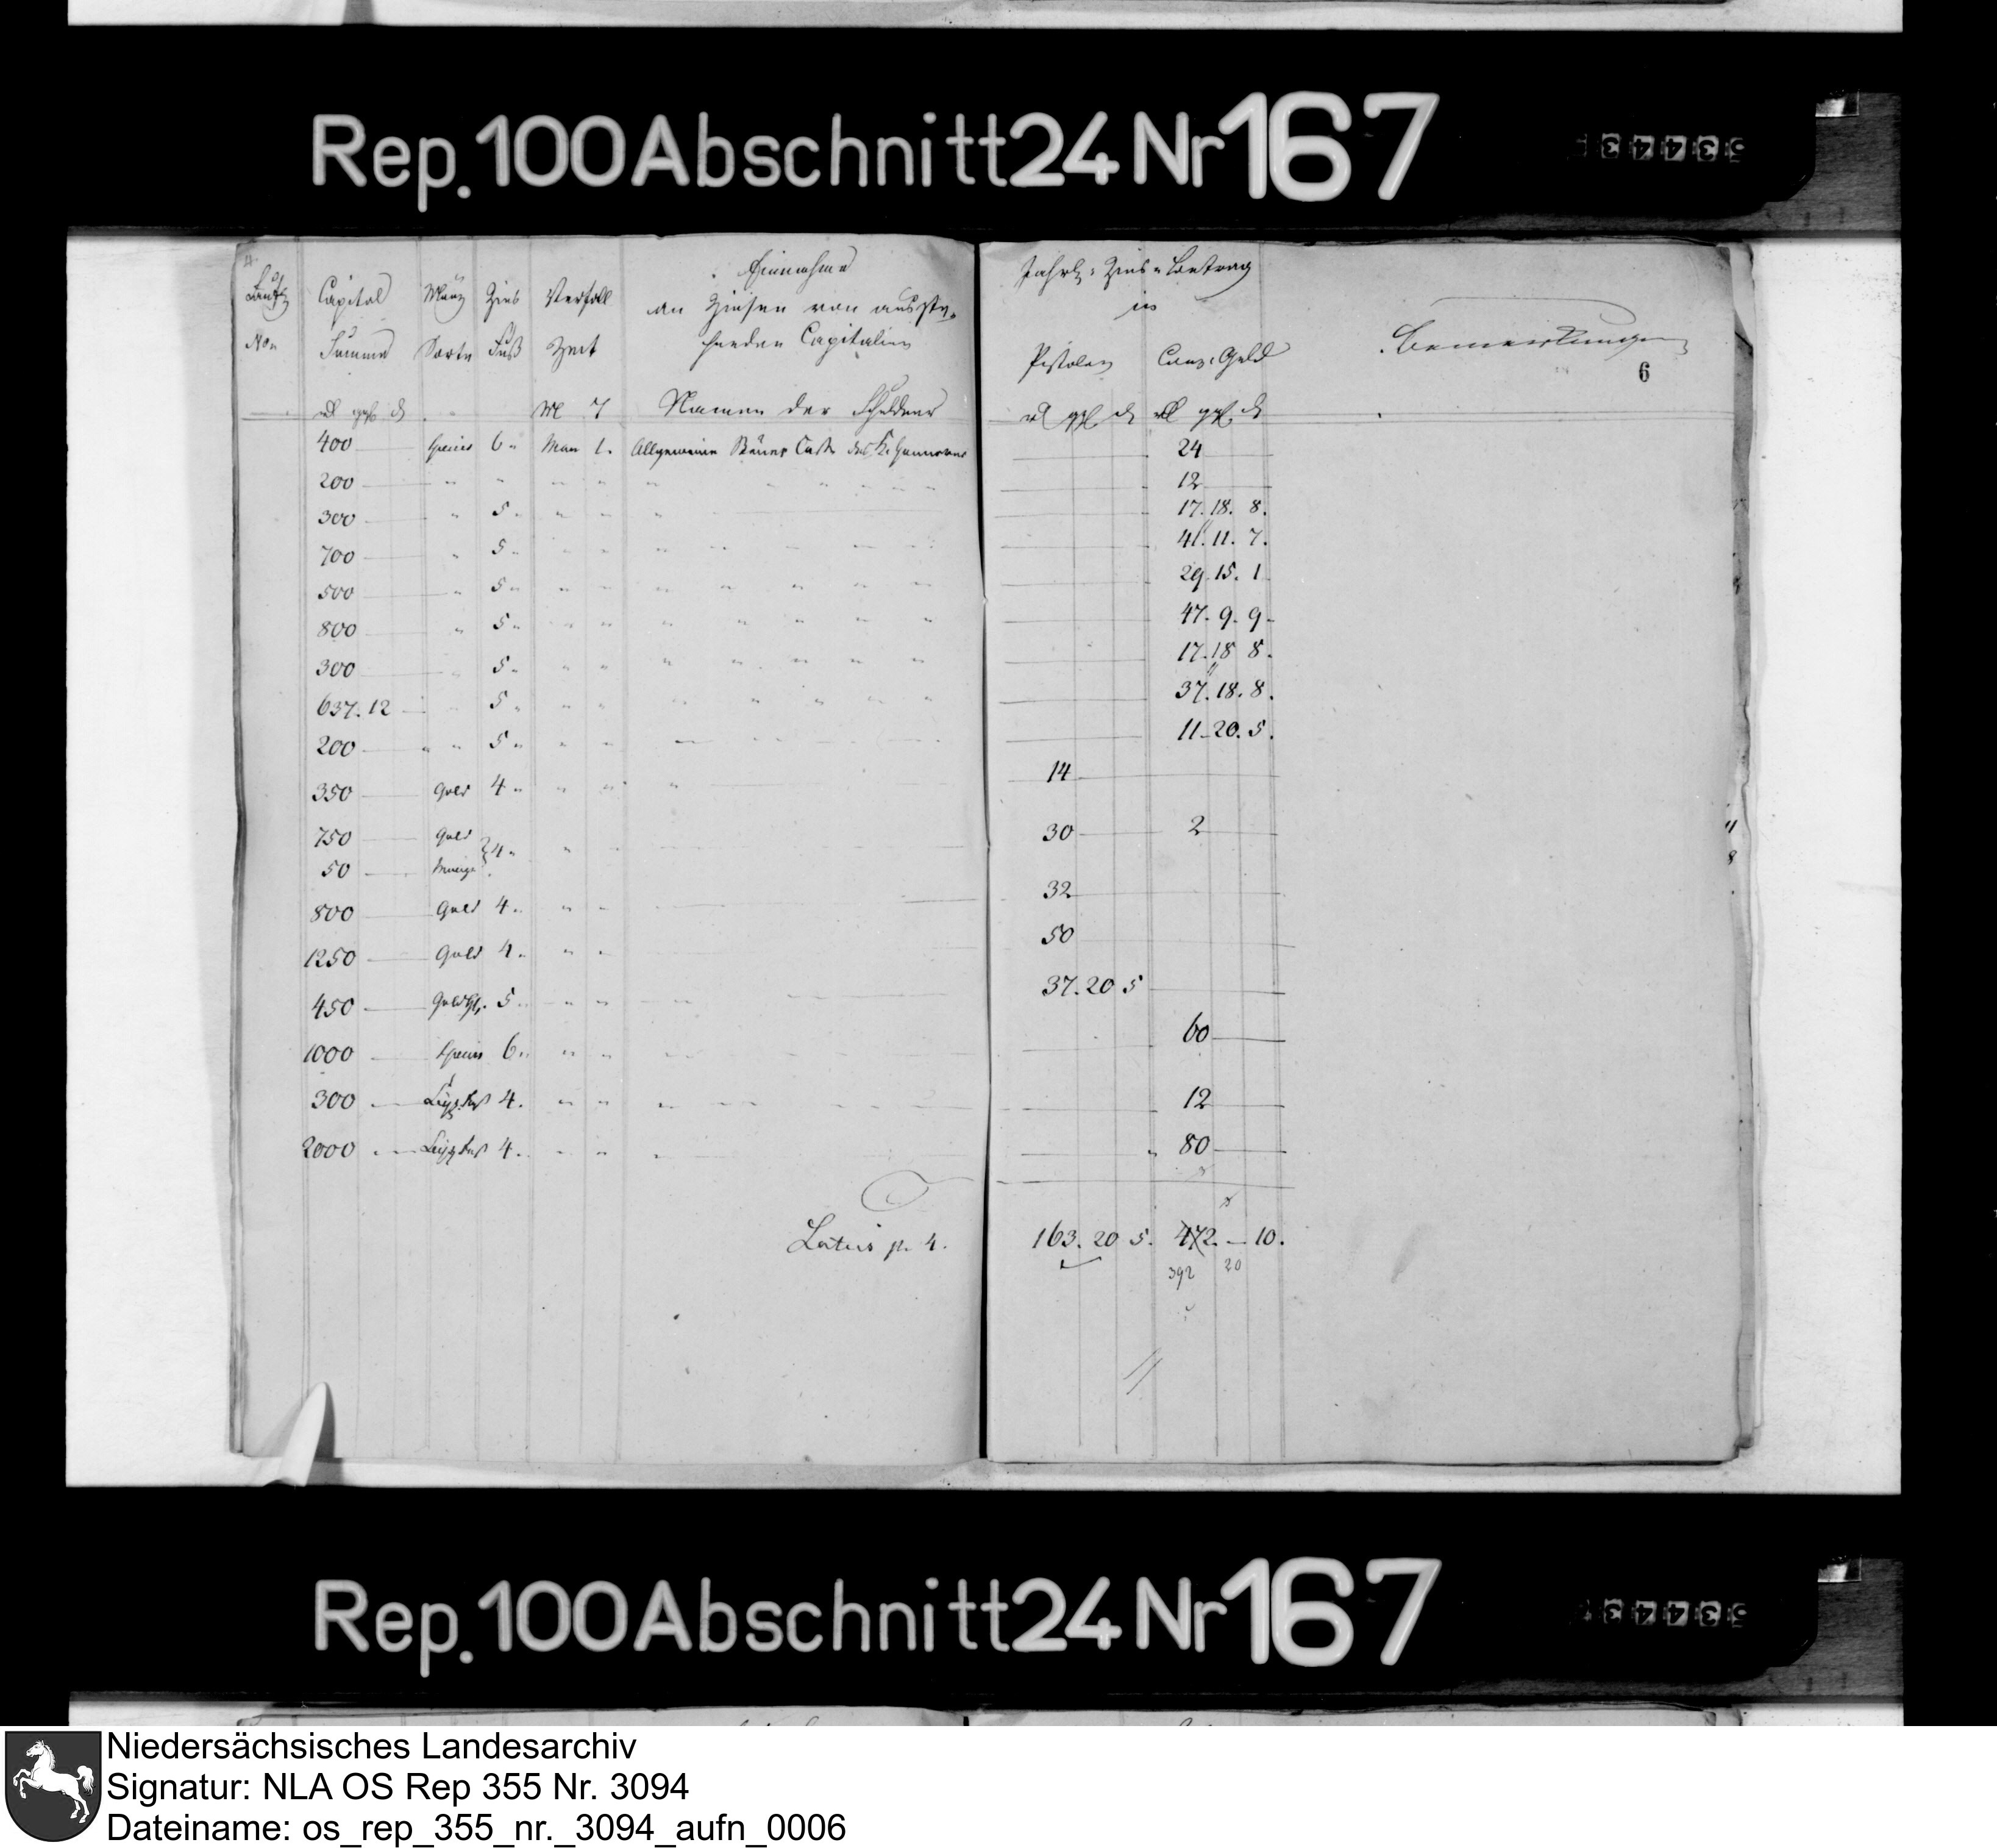 Rep. 100 Abschnitt 24 Nr 167
4.
Laufd
No.
Capital
Summe
Münz
Sorte
Zins
Fuß
Verfall
Zeit
Einnahme
an Zinsen von ausste-
henden Capitalien
Jährl: Zins-Betrag
in
Pistolen
Conv: Geld
Bemerkungen
6
Namen der Schuldner
400 Species 6 " May 1. Allgemeine Steuer Casse des K. Hannover 24
200 " " " " " 12
300 " 5 " " " " 17. 18. 8.
700 " 5 " " " " 41. 11. 7.
500 " 5 " " " " 29. 15. 1
800 " 5 " " " " 47. 9. 9.
300 " 5 " " " " 17. 18 8.
637. 12 " 5 " " " " 37. 18. 8.
200 " 5 " " " " 11. 20. 5.
350 Gold 4 " " " " 14
750 Gold
50 Münze } 4 " " 30 2
800 Gold 4 " " " 32
1250 Gold 4 " " " 50
450 5 " " " 37. 20 5
1000 Species 6 " " " 60
300 4 " " " 12
2000 4 " " " 80
Latus p. 4. 163. 20 5. 472. — 10.
392 20
Rep. 100 Abschnitt 24 Nr 167
Niedersächsisches Landesarchiv
Signatur: NLA OS Rep 355 Nr. 3094
Dateiname: os_rep_355_nr._3094_aufn_0006